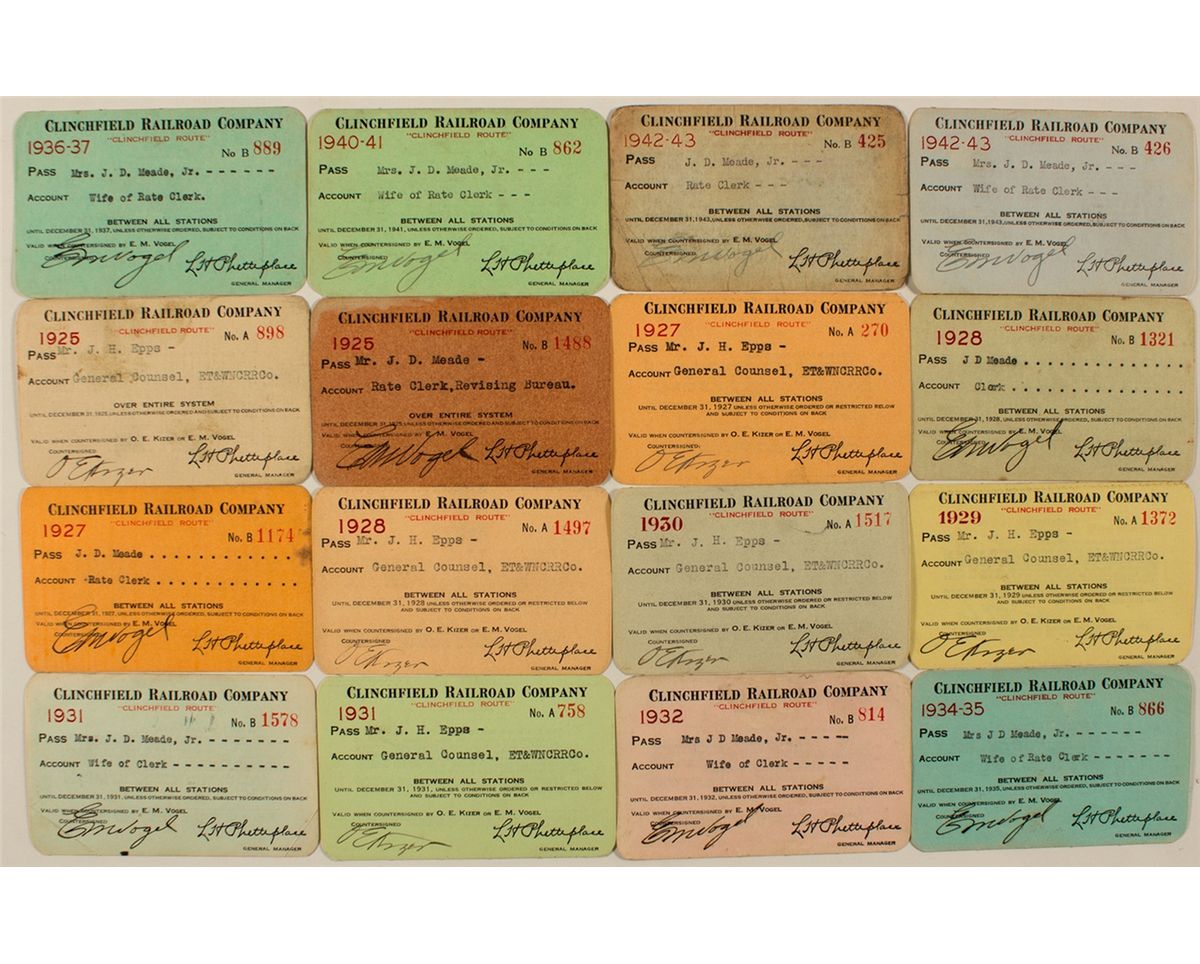 CLINCHFIELD RAILROAD COMPANY
"CLINCHFIELD ROUTE"
1936-37 No B 889
PASS Mrs. J. D. Meade, Jr. - - - - - - -
ACCOUNT Wife of Rate Clerk.
BETWEEN ALL STATIONS
UNTIL DECEMBER 31, 1937, UNLESS OTHERWISE ORDERED, SUBJECT TO CONDITIONS ON BACK
VALID WHEN COUNTERSIGNED BY E. M. VOGEL
COUNTERSIGNED
EMVogel LHPhetteplace
GENERAL MANAGER
CLINCHFIELD RAILROAD COMPANY
"CLINCHFIELD ROUTE"
1940-41 No B 862
PASS Mrs. J. D. Meade, Jr. - - -
ACCOUNT Wife of Rate Clerk - - -
BETWEEN ALL STATIONS
UNTIL DECEMBER 31, 1941, UNLESS OTHERWISE ORDERED, SUBJECT TO CONDITIONS ON BACK
VALID WHEN COUNTERSIGNED BY E. M. VOGEL
COUNTERSIGNED
EMVogel LHPhetteplace
GENERAL MANAGER
CLINCHFIELD RAILROAD COMPANY
"CLINCHFIELD ROUTE"
1942-43 No. B 425
PASS J. D. Meade, Jr. - - -
ACCOUNT Rate Clerk - - -
BETWEEN ALL STATIONS
UNTIL DECEMBER 31, 1943, UNLESS OTHERWISE ORDERED, SUBJECT TO CONDITIONS ON BACK
VALID WHEN COUNTERSIGNED BY E. M. VOGEL
COUNTERSIGNED
EMVogel LHPhetteplace
GENERAL MANAGER
CLINCHFIELD RAILROAD COMPANY
"CLINCHFIELD ROUTE"
1942-43 No. B 426
PASS Mrs. J. D. Meade, Jr. - - -
ACCOUNT Wife of Rate Clerk - - -
BETWEEN ALL STATIONS
UNTIL DECEMBER 31, 1943, UNLESS OTHERWISE ORDERED, SUBJECT TO CONDITIONS ON BACK
VALID WHEN COUNTERSIGNED BY E. M. VOGEL
COUNTERSIGNED
EMVogel LHPhetteplace
GENERAL MANAGER
CLINCHFIELD RAILROAD COMPANY
"CLINCHFIELD ROUTE"
1925 No. A 898
PASS Mr. J. H. Epps -
ACCOUNT General Counsel, ET&WNCRRCo.
OVER ENTIRE SYSTEM
UNTIL DECEMBER 31, 1925, UNLESS OTHERWISE ORDERED AND SUBJECT TO CONDITIONS ON BACK
VALID WHEN COUNTERSIGNED BY O. E. KIZER OR E. M. VOGEL
COUNTERSIGNED:
OEKizer LHPhetteplace
GENERAL MANAGER
CLINCHFIELD RAILROAD COMPANY
"CLINCHFIELD ROUTE"
1925 No. B 1488
PASS Mr. J. D. Meade -
ACCOUNT Rate Clerk,Revising Bureau.
OVER ENTIRE SYSTEM
UNTIL DECEMBER 31, 1925, UNLESS OTHERWISE ORDERED AND SUBJECT TO CONDITIONS ON BACK
VALID WHEN COUNTERSIGNED BY E. M. VOGEL
EMVogel LHPhetteplace
GENERAL MANAGER
CLINCHFIELD RAILROAD COMPANY
"CLINCHFIELD ROUTE"
1927 No. A 270
PASS Mr. J. H. Epps -
ACCOUNT General Counsel, ET&WNCRRCo.
BETWEEN ALL STATIONS
UNTIL DECEMBER 31, 1927 UNLESS OTHERWISE ORDERED OR RESTRICTED BELOW
AND SUBJECT TO CONDITIONS ON BACK
VALID WHEN COUNTERSIGNED BY O. E. KIZER OR E. M. VOGEL
COUNTERSIGNED:
OEKizer LHPhetteplace
GENERAL MANAGER
CLINCHFIELD RAILROAD COMPANY
"CLINCHFIELD ROUTE"
1928 No. B 1321
PASS J D Meade . . . . . . . . . . . . . . . .
ACCOUNT Clerk . . . . . . . . . . . . . . . . .
BETWEEN ALL STATIONS
UNTIL DECEMBER 31, 1928, UNLESS OTHERWISE ORDERED, SUBJECT TO CONDITIONS ON BACK
VALID WHEN COUNTERSIGNED BY E. M. VOGEL
COUNTERSIGNED:
EMVogel LHPhetteplace
GENERAL MANAGER
CLINCHFIELD RAILROAD COMPANY
"CLINCHFIELD ROUTE"
1927 No. B 1174
PASS J. D. Meade . . . . . . . . . . . .
ACCOUNT Rate Clerk . . . . . . . . . . . .
BETWEEN ALL STATIONS
UNTIL DECEMBER 31, 1927, UNLESS OTHERWISE ORDERED, SUBJECT TO CONDITIONS ON BACK
VALID WHEN COUNTERSIGNED BY E. M. VOGEL
COUNTERSIGNED:
EMVogel LHPhetteplace
GENERAL MANAGER
CLINCHFIELD RAILROAD COMPANY
"CLINCHFIELD ROUTE"
1928 No. A 1497
PASS Mr. J. H. Epps -
ACCOUNT General Counsel, ET&WNCRRCo.
BETWEEN ALL STATIONS
UNTIL DECEMBER 31, 1928 UNLESS OTHERWISE ORDERED OR RESTRICTED BELOW
AND SUBJECT TO CONDITIONS ON BACK
VALID WHEN COUNTERSIGNED BY O. E. KIZER OR E. M. VOGEL
COUNTERSIGNED:
OEKizer LHPhetteplace
GENERAL MANAGER
CLINCHFIELD RAILROAD COMPANY
"CLINCHFIELD ROUTE"
1930 No. A 1517
PASS Mr. J. H. Epps -
ACCOUNT General Counsel, ET&WNCRRCo.
BETWEEN ALL STATIONS
UNTIL DECEMBER 31, 1930 UNLESS OTHERWISE ORDERED OR RESTRICTED BELOW
AND SUBJECT TO CONDITIONS ON BACK
VALID WHEN COUNTERSIGNED BY O. E. KIZER OR E. M. VOGEL
COUNTERSIGNED:
OEKizer LHPhetteplace
GENERAL MANAGER
CLINCHFIELD RAILROAD COMPANY
"CLINCHFIELD ROUTE"
1929 No. A 1372
PASS Mr. J. H. Epps -
ACCOUNT General Counsel, ET&WNCRRCo.
BETWEEN ALL STATIONS
UNTIL DECEMBER 31, 1929 UNLESS OTHERWISE ORDERED OR RESTRICTED BELOW
AND SUBJECT TO CONDITIONS ON BACK
VALID WHEN COUNTERSIGNED BY O. E. KIZER OR E. M. VOGEL
COUNTERSIGNED:
OEKizer LHPhetteplace
GENERAL MANAGER
CLINCHFIELD RAILROAD COMPANY
"CLINCHFIELD ROUTE"
1931 No. B 1578
PASS Mrs. J. D. Meade, Jr. - - - - - - -
ACCOUNT Wife of Clerk - - - - - - - - - -
BETWEEN ALL STATIONS
UNTIL DECEMBER 31, 1931, UNLESS OTHERWISE ORDERED, SUBJECT TO CONDITIONS ON BACK
VALID WHEN COUNTERSIGNED BY E. M. VOGEL
COUNTERSIGNED
EMVogel LHPhetteplace
GENERAL MANAGER
CLINCHFIELD RAILROAD COMPANY
"CLINCHFIELD ROUTE"
1931 No. A 758
PASS Mr. J. H. Epps -
ACCOUNT General Counsel, ET&WNCRRCo.
BETWEEN ALL STATIONS
UNTIL DECEMBER 31, 1931, UNLESS OTHERWISE ORDERED OR RESTRICTED BELOW
AND SUBJECT TO CONDITIONS ON BACK
VALID WHEN COUNTERSIGNED BY O. E. KIZER OR E. M. VOGEL
COUNTERSIGNED
OEKizer LHPhetteplace
GENERAL MANAGER
CLINCHFIELD RAILROAD COMPANY
"CLINCHFIELD ROUTE"
1932 No. B 814
PASS Mrs J D Meade, Jr. - - - - -
ACCOUNT Wife of Clerk - - - - - -
BETWEEN ALL STATIONS
UNTIL DECEMBER 31, 1932, UNLESS OTHERWISE ORDERED, SUBJECT TO CONDITIONS ON BACK
VALID WHEN COUNTERSIGNED BY E. M. VOGEL
COUNTERSIGNED
EMVogel LHPhetteplace
GENERAL MANAGER
CLINCHFIELD RAILROAD COMPANY
"CLINCHFIELD ROUTE"
1934-35 No B 866
PASS Mrs J D Meade, Jr. - - - - - - -
ACCOUNT Wife of Rate Clerk - - - - - - -
BETWEEN ALL STATIONS
UNTIL DECEMBER 31, 1935, UNLESS OTHERWISE ORDERED, SUBJECT TO CONDITIONS ON BACK
VALID WHEN COUNTERSIGNED BY E. M. VOGEL
COUNTERSIGNED
EMVogel LHPhetteplace
GENERAL MANAGER